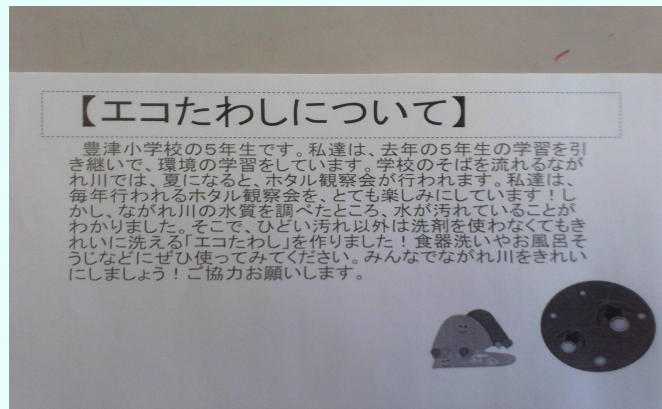 【エコたわしについて】
豊津小学校の5年生です。私達は、去年の5年生の学習を引
き継いで、環境の学習をしています。学校のそばを流れるなが
れ川では、夏になると、ホタル観察会が行われます。私達は、
毎年行われるホタル観察会を、とても楽しみにしています！し
かし、ながれ川の水質を調べたところ、水が汚れていることが
わかりました。そこで、ひどい汚れ以外は洗剤を使わなくてもき
れいに洗える「エコたわし」を作りました！食器洗いやお風呂そ
うじなどにぜひ使ってみてください。みんなでながれ川をきれい
にしましょう！ご協力お願いします。